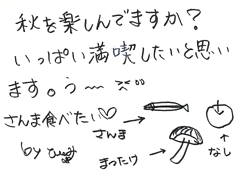 秋を楽しんでますか?
いっぱい満喫したいと思い
ます。う〜
さんま食べたい♡
さんま
by
まったけ
なし